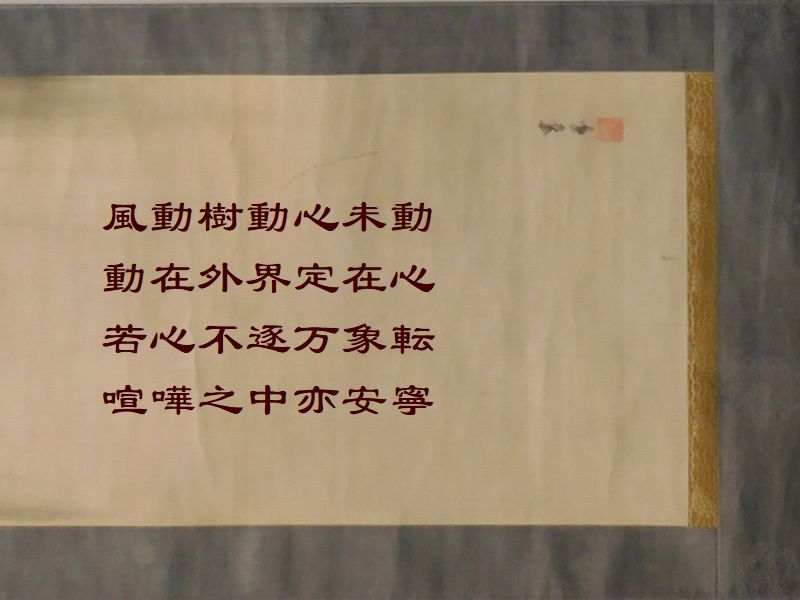 風動樹動心未動
動在外界定在心
若心不逐万象転
喧嘩之中亦安寧